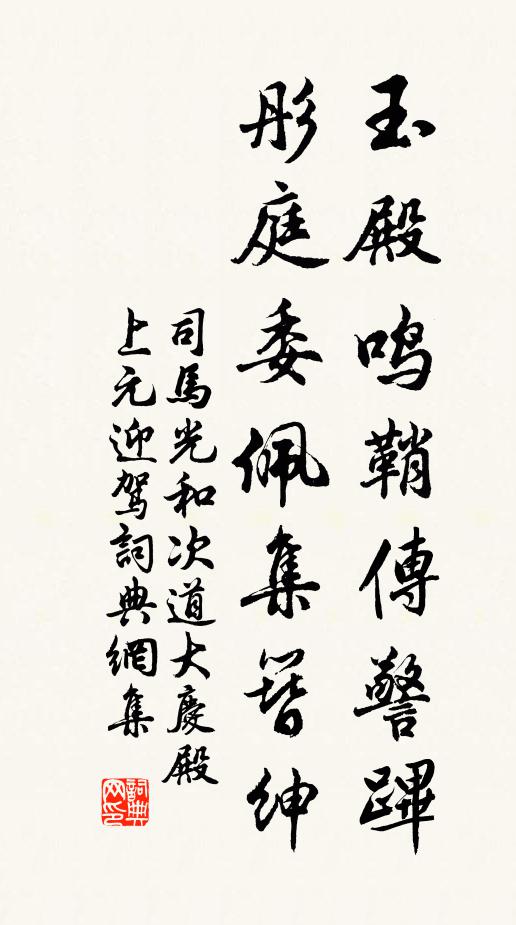 玉殿鸣鞘傳警蹕
彤庭委佩集簪紳
司馬光和次道大慶殿
上元迎駕詞典網集
詞典网印